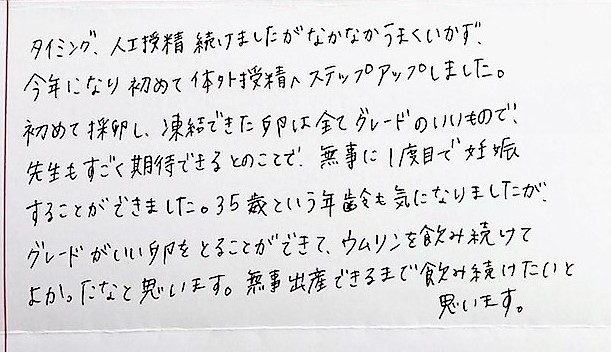 タイミング、人工授精 続けましたがなかなかうまくいかず、
今年になり 初めて 体外授精へ ステップアップしました。
初めて 採卵し、凍結できた 卵は全て グレードの いいもので、
先生も すごく 期待できる とのことで、無事に 1度目で 妊娠
することが できました。35歳という 年齢も 気になりましたが、
グレードがいい 卵を とることができて、ウムリンを 飲み 続けて
よかったなと 思います。無事 出産できるまで 飲み 続けたいと
思います。